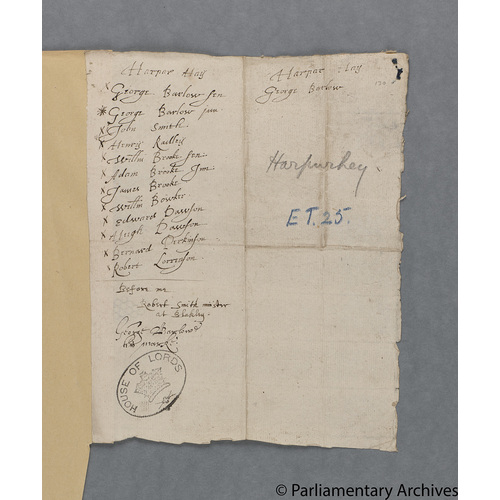 Harper Hay
x George Barlow sen
* George Barlow jun
x John Smith
x Henry Radley
x Willm Brooke sen
x Adam Brooke Jun
x James Brooke
x Willm Bowker
x Edward Dawson
x Hugh Dawson
x Bernard Dickinson
x Robert Lorrenson
Before me
Robert Smith minister
at Blakley
George Barlowe
his marke
HOUSE OF LORDS
Harper Hay
George Barlow
Harpurhey.
E T. 25.
© Parliamentary Archives